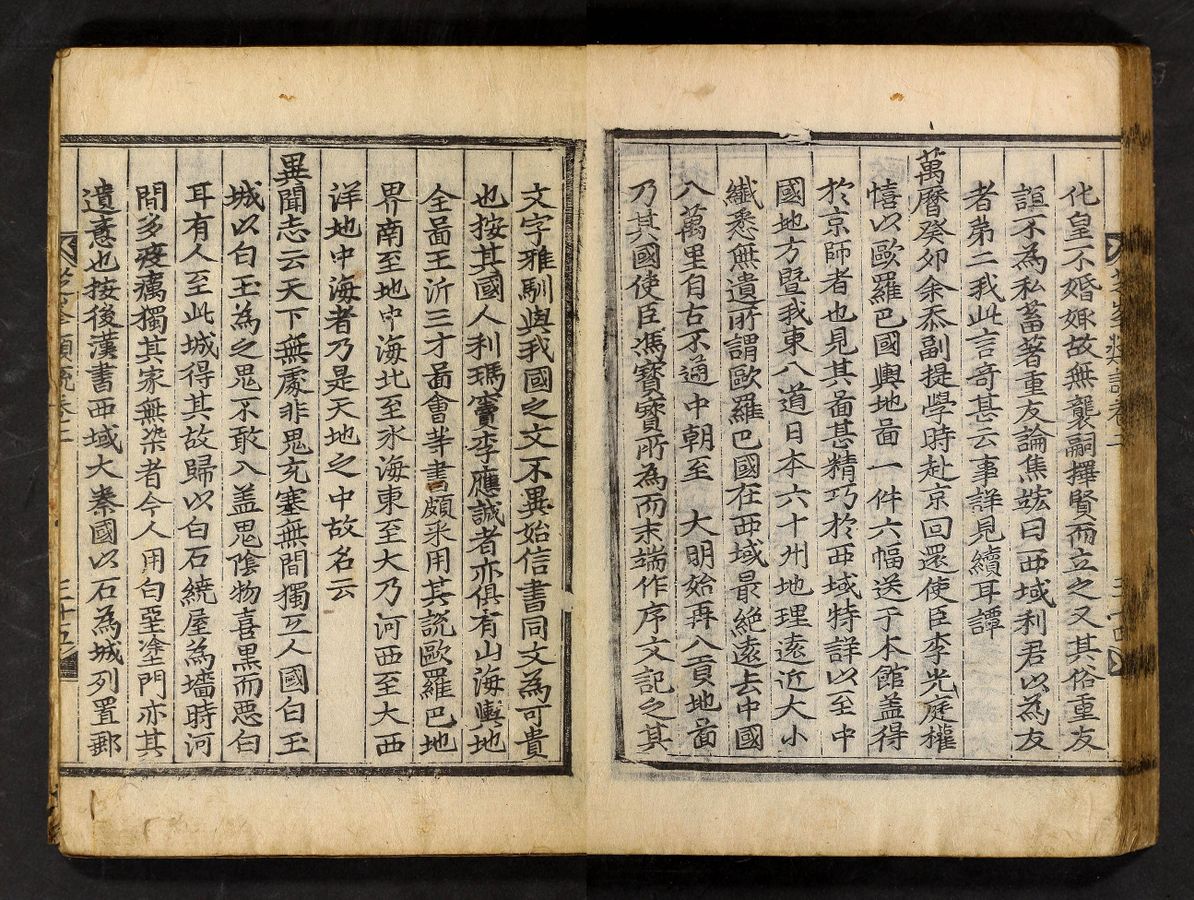 化皇不婚娵故無襲嗣擇賢而立之又其俗重友
誼不為私蓄著重友論焦竑曰西域利君以為友
者第二我此言奇甚云事詳見續耳譚
萬曆癸夘余忝副提學時赴京回還使臣李光庭權
憘以歐羅巴國輿地啚一件六幅送于本館盖得
於京師者也見其啚甚精巧於西域特詳以至中
國地方暨我東八道日本六十州地理遠近大小
纖悉無遺所謂歐羅巴國在西域最絶遠去中國
八萬里自古不通中朝至 大明始再入貢地啚
乃其國使臣馮寶寶所為而末端作序文記之其
文字雅馴與我國之文不異始信書同文為可貴
也按其國人利瑪竇李應誠者亦俱有山海輿地
全啚王沂三才啚會等書頗采用其說歐羅巴地
界南至地中海北至氷海東至大乃河西至大西
洋地中海者乃是天地之中故名云
異聞志云天下無處非鬼充塞無間獨互人國白玉
城以白玉為之鬼不敢入盖鬼陰物喜黒而悪白
耳有人至此城得其故歸以白石繞屋為墻時河
間多疫癘獨其家無染者今人用白堊塗門亦其
遺意也按後漢書西域大秦國以石為城列置郵